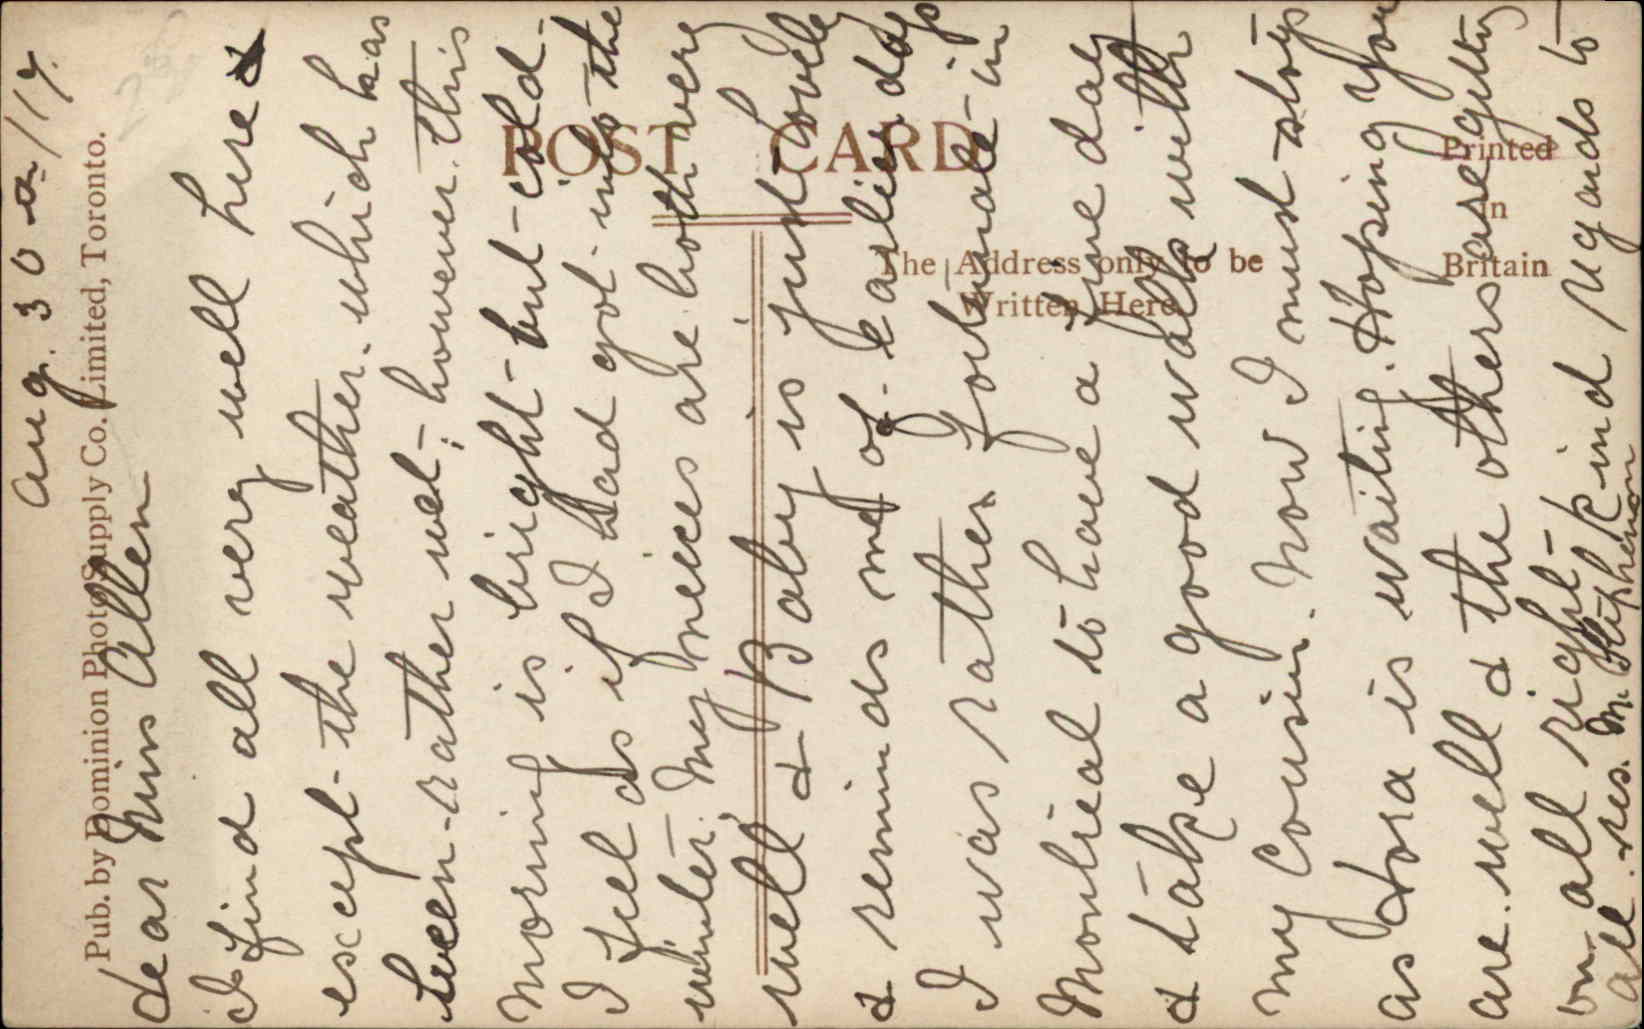 Aug. 30th/17.
Dear Miss Allen
I find all very well here &
except the weather. which has
been rather wet; however this
morning is bright but cold.
I feel as if I had got into the
winter. My nieces are both very
well & Baby is just lovely
& reminds me of earlier days
I was rather fortunate in
Montreal to have a fine day
& take a good walk with
my Cousin. Now I must stop
as Dora is waiting. Hoping you
are well & the others are getting
on all right kind regards to
all. M. Stephenson
POST CARD
The Address only to be
Written Here
Printed
in
Britain
Pub. by Dominion Photo Supply Co. Limited, Toronto.